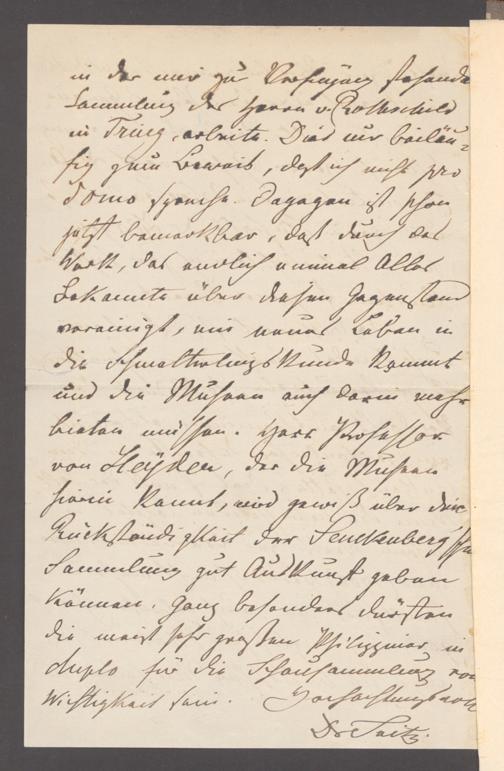 in der mir zur Verfügung stehende
Sammlung des Herrn v. Rothschild
in Tring, arbeite. Dies nur beiläu-
fig zum Beweis, daß ich nicht pro
domo spreche. Dagegen ist schon
jetzt bemerkbar, daß durch das
Werk, das endlich einmal Alles
Bekannte über diesen Gegenstand
vereinigt, ein neues Leben in
die Schmetterlingskunde kommt
und die Museen auch darin mehr
bieten müssen. Herr Professor
von Heyden, der die Museen
hierin kennt, wird gewiß über die
Rückständigkeit der Senckenberg'schen
Sammlung gut Auskunft geben
können. Ganz besonders dürften
die meist sehr großen Philippiner, in
duplo für die Schausammlung von
Wichtigkeit sein. Hochachtungsvoll
Dr Seitz.